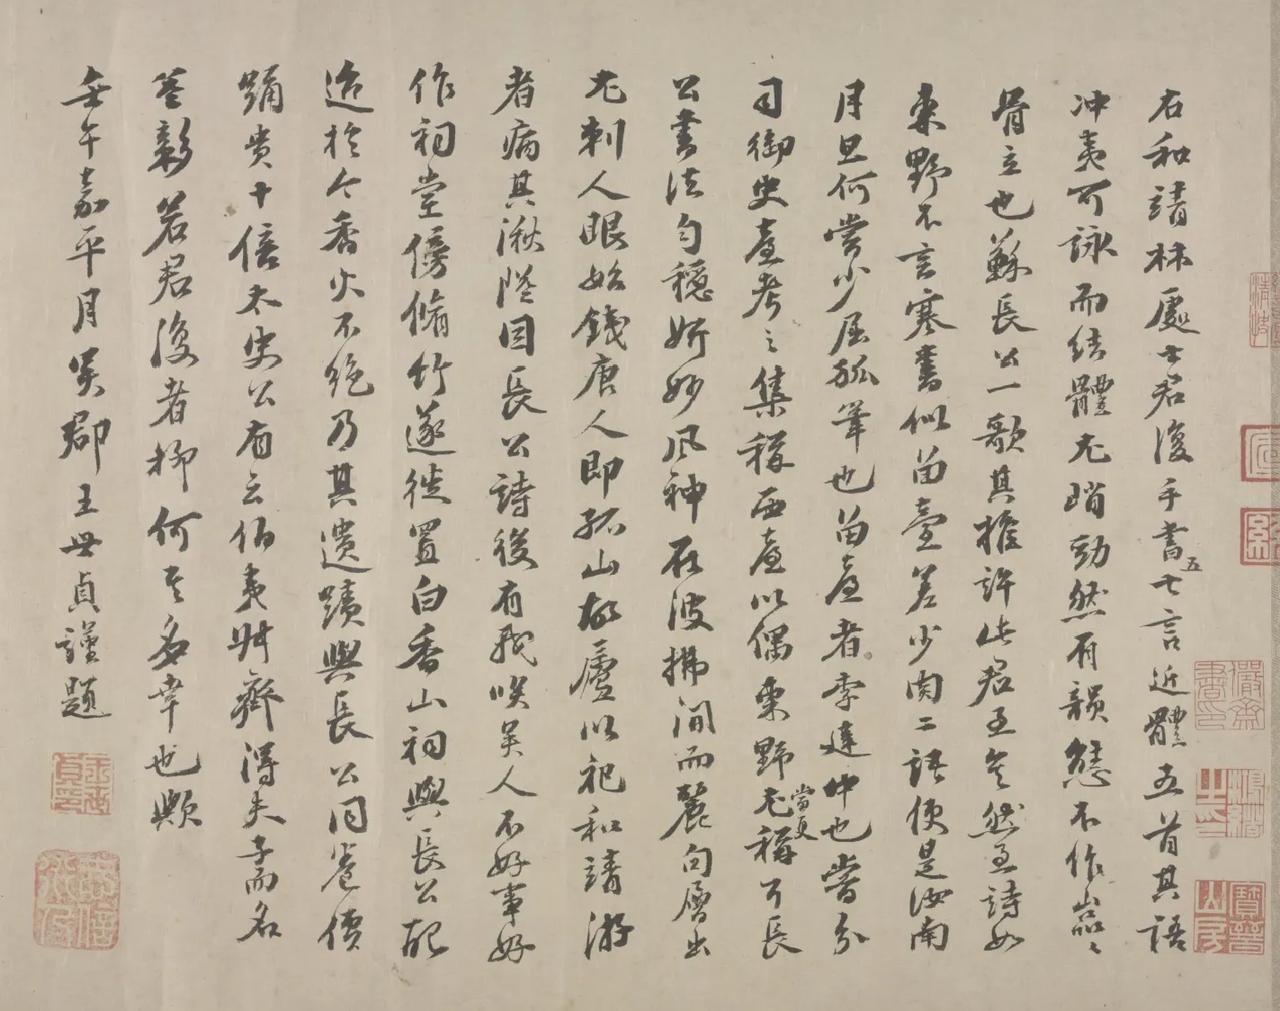 右和靖林處士君復手書五七言近體五首其語
冲夷可詠而結體尤峭勁然有韻態不作嵓嵓
骨立也蘇長公一歌其推許此君至矣然至詩如
東野不言寒書似留臺差少肉二語便是汝南
月旦何嘗少屈狐筆也留臺者李建中也嘗分
司御史臺考之集稱西臺以偶東野尤稱可長
當更
公書法勻穩妍妙風神在波拂間而麗句層出
尤刺人眼始錢唐人即孤山故廬以祀和靖游
者病其湫隘因長公詩後有我笑吳人不好事好
作祠堂傍脩竹遂徙置白香山祠與長公配
迨於今香火不絕乃其遺蹟與長公同卷價
踊貴十倍太史公有云伯夷叔齊得夫子而名
益彰若君復者抑何其多幸也歟
壬午嘉平月吳郡王世貞謹題